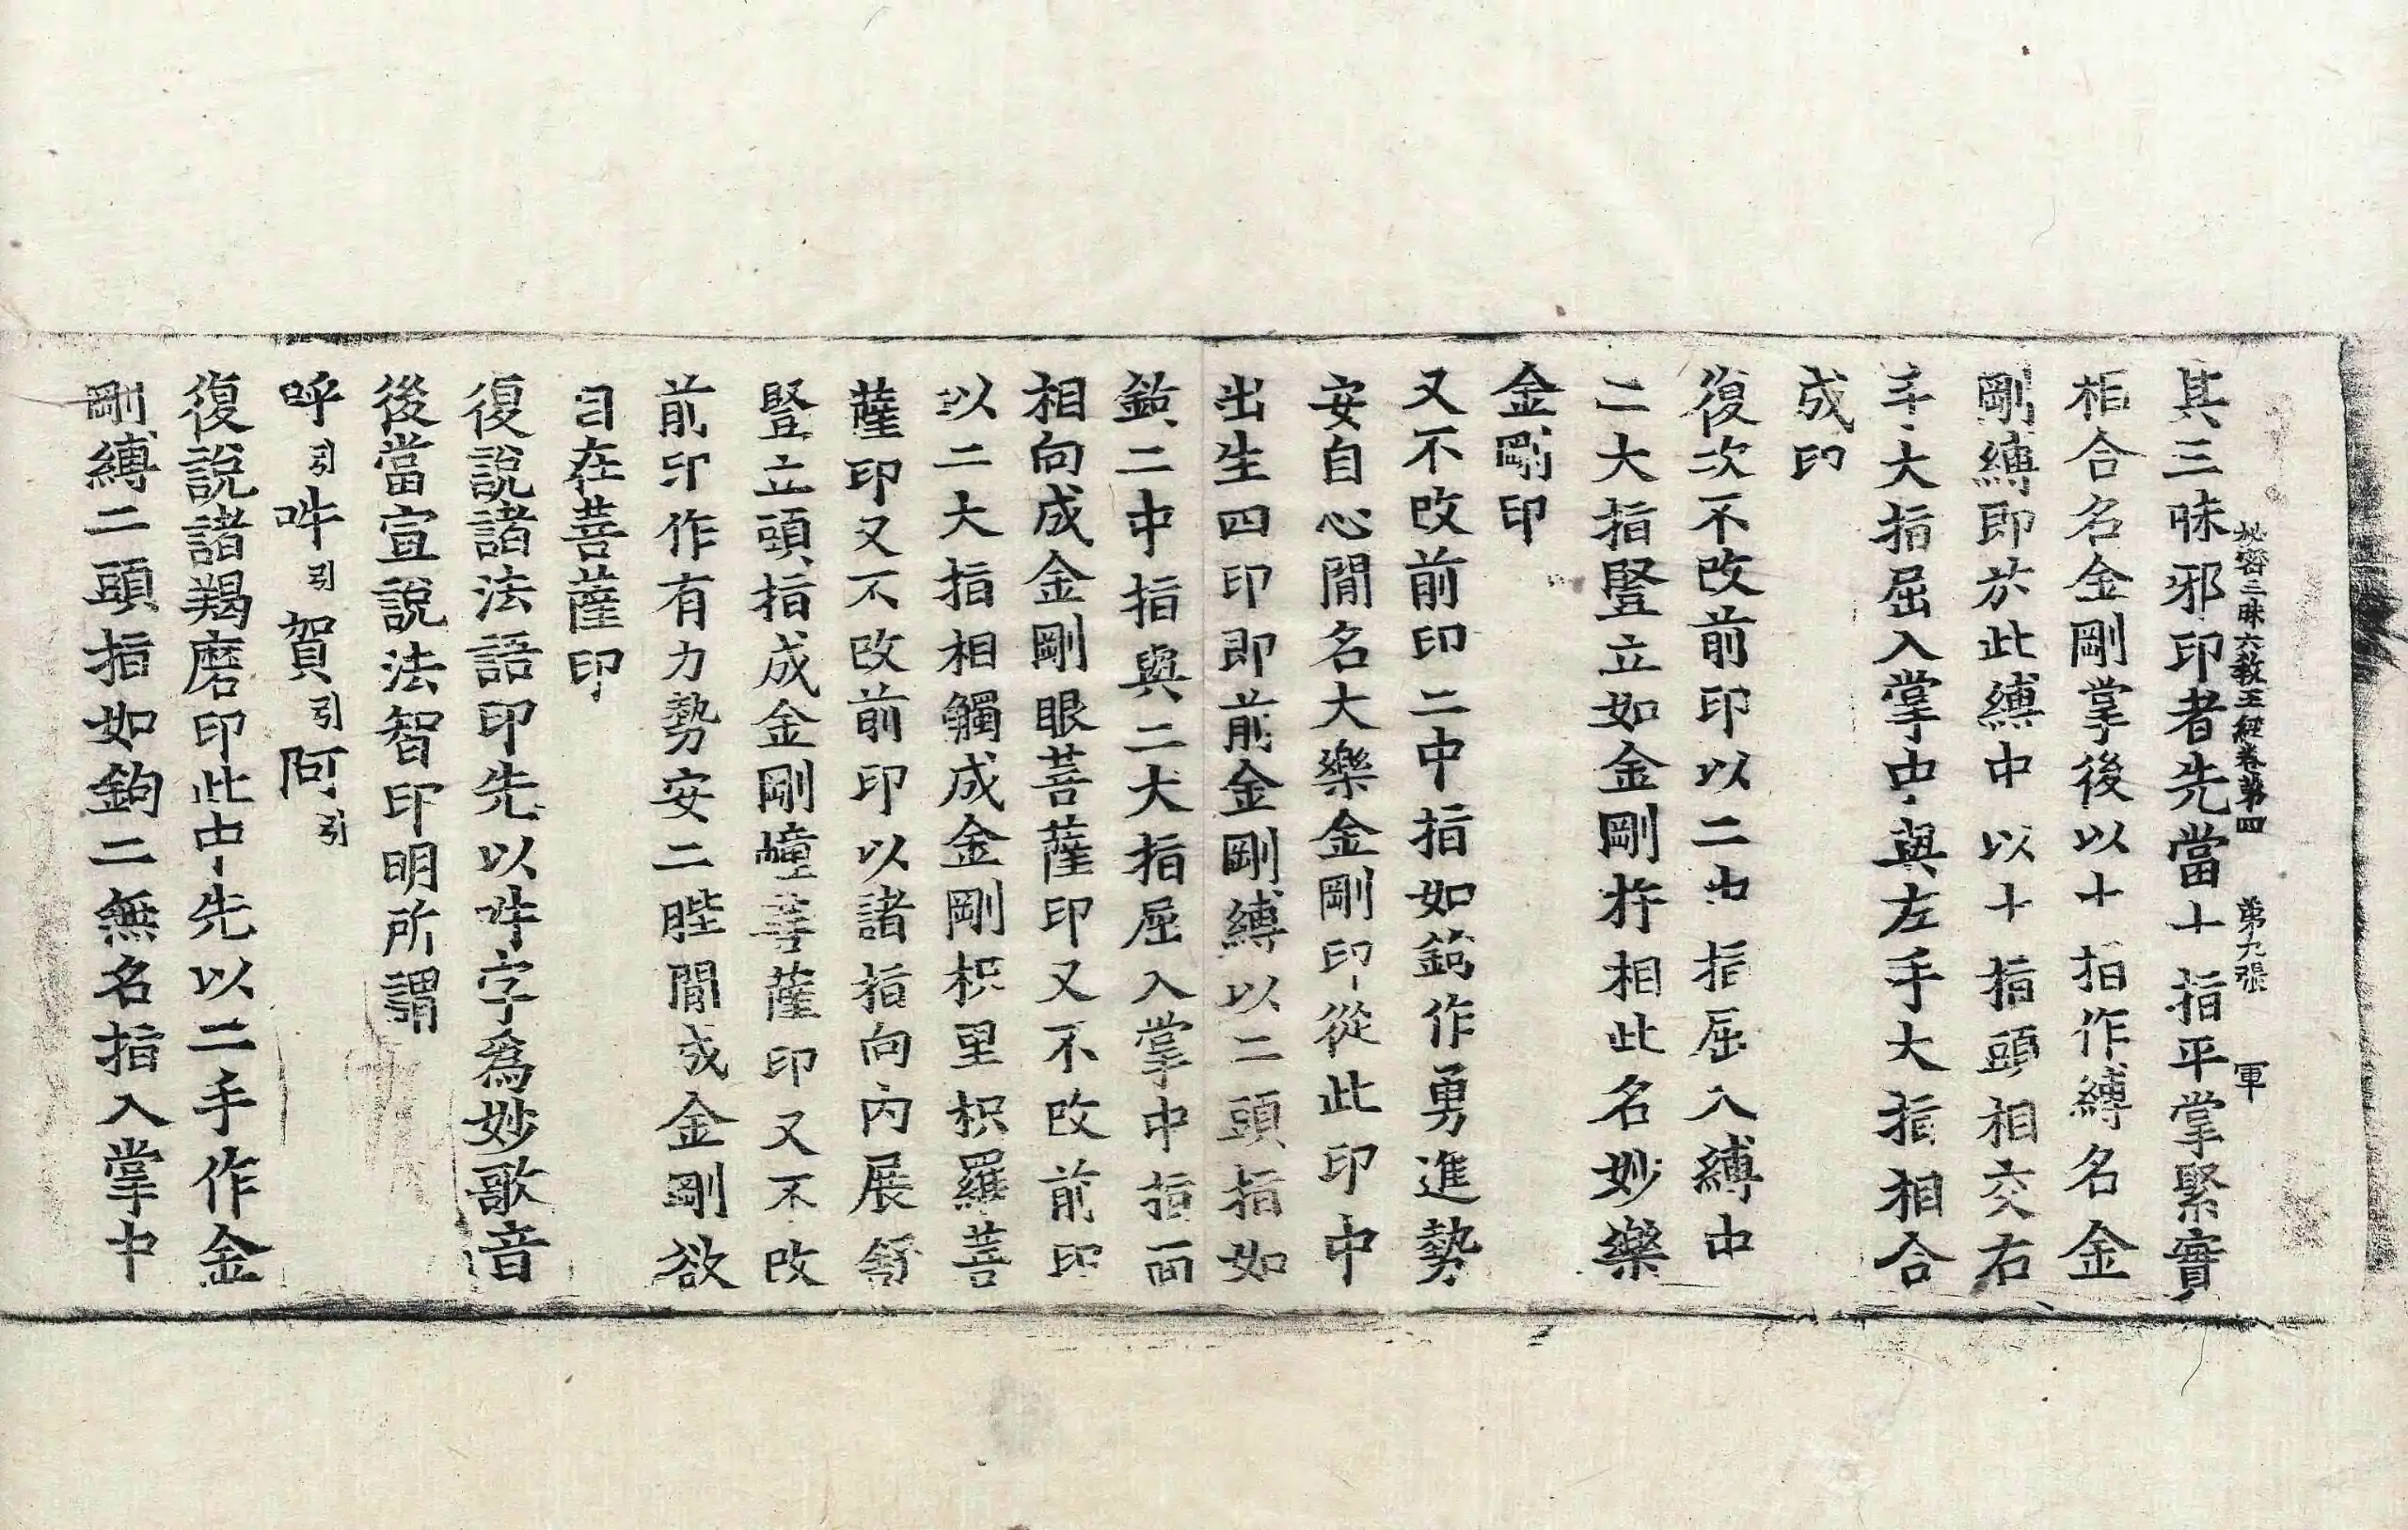 秘密三昧大教王經卷第四 第九張 軍
其三昧邪印者先當十指平掌緊實
相合名金剛掌後以十指作縛名金
剛縛即於此縛中以十指頭相交右
手大指屈入掌中與左手大指相合
成印
復次不改前印以二中指屈入縛中
二大指豎立如金剛杵相此名妙樂
金剛印
又不改前印二中指如鉤作勇進勢
安自心間名大樂金剛印從此印中
出生四印即前金剛縛以二頭指如
鉤二中指與二大指屈入掌中指面
相向成金剛眼菩薩印又不改前印
以二大指相觸成金剛枳里枳羅菩
薩印又不改前印以諸指向內展舒
豎立頭指成金剛幢菩薩印又不改
前印作有力勢安二髀間成金剛欲
自在菩薩印
復說諸法語印先以吽字為妙歌音
後當宣說法智印明所謂
呼引吽引賀引阿引
復說諸羯磨印此中先以二手作金
剛縛二頭指如鉤二無名指入掌中